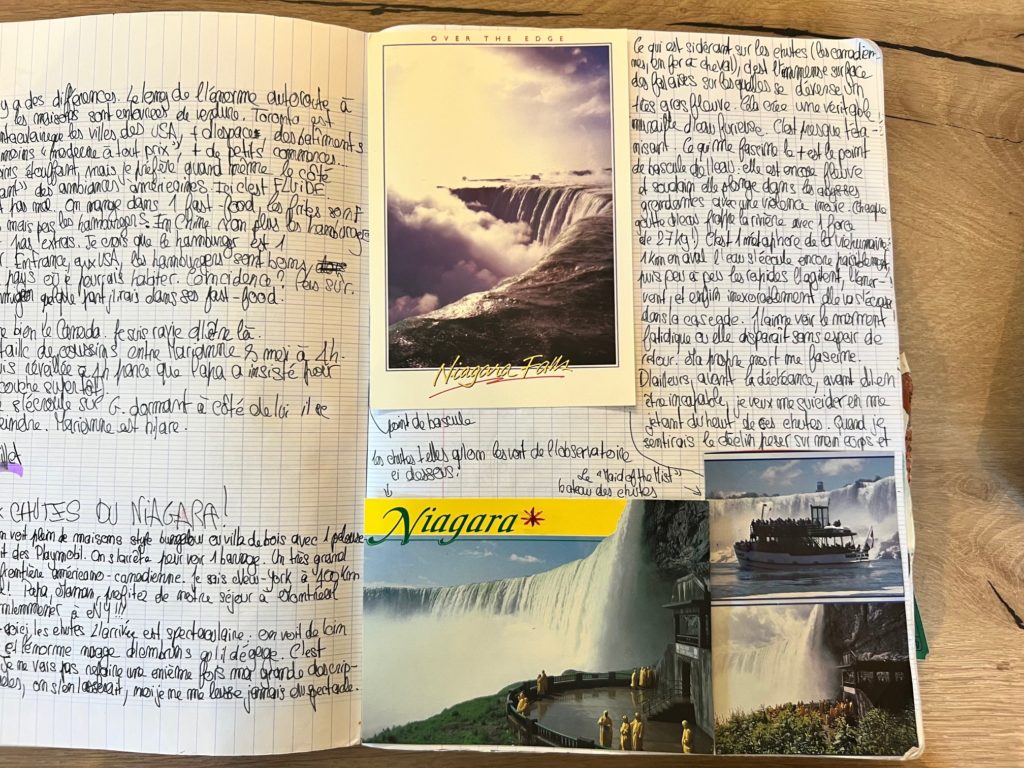 y a des différences. Le long de l'énorme autoroute à
les maisons sont entourées de verdure. Toronto est
que les villes des USA, + d'espace des batiments
moins "moderne à tout prix", + de petits commerces.
étouffant, mais je préfère quand même le côté
ant" des ambiances américaines. Ici c'est FLUIDE
pas mal. On mange dans 1 fast-food, les frites sont
mais pas les hamburgers. En Chine non plus les hamburgers
pas extras. Je crois que le hamburger est 1
En France, aux USA, les hamburgers sont bons
pays où je pourrais habiter. Coïncidence? Pas sûr.
quelque part j'irais dans ses fast-food.
bien le Canada. Je suis ravie d'être là.
taille de coussins entre Marianne & moi à 1h.
suis réveillée à 4h parce que Papa a insisté pour
s'écroule sur G. dormant à côté de lui il se
Marianne est hilare.
CHUTES DU NIAGARA!
on voit plein de maisons style bungalow ou villa de bois avec 1 pelouse
des Playmobil. On s'arrête pour voir 1 barrage. Un très grand
frontière américano-canadienne. Je sais New-York à 400km
Papa, Maman, profitez de notre séjour à Montréal
m'emmener à NY!!!
voici les chutes L'arrivée est spectaculaire: on voit de loin
et l'énorme nuage d'embruns qu'il dégage. C'est
Je ne vais pas refaire une enième fois ma grande descrip-
on s'en lasserait, moi je ne me lasse jamais du spectacle.
OVER THE EDGE
Niagara Falls
point de bascule
les chutes telles qu'on les voit de l'observatoire
ci dessous!
Le "Maid of the Mist"
bateau des chutes
Niagara
Ce qui est sidérant sur les chutes (les canadien-
nes, en fer à cheval), c'est l'immense surface
des falaises sur lesquelles se déverse un
très gros fleuve. Cela crée une véritable
muraille d'eau furieuse. C'est presque l'eta-
misant. Ce qui me fascine le + est le point
de bascule de l'eau: elle est encore fleuve
et soudain elle plonge dans les abysses
grondantes avec une violence inouïe. (chaque
goutte d'eau frappe la rivière avec 1 force
de 27kg!) C'est 1 métaphore de la vie humaine:
1 km en aval l'eau s'écoule encore paisiblement,
puis peu à peu les rapides l'agitent, l'éner-
vent, et enfin inexorablement elle va s'écraser
dans la cascade. J'aime voir le moment
fatidique où elle disparaît sans espoir de
retour. Ma propre mort me fascine.
D'ailleurs, avant la déchéance, avant d'en
être incapable, je veux me suicider en me
jetant du haut de ces chutes. Quand je
sentirais le déclin peser sur mon corps et